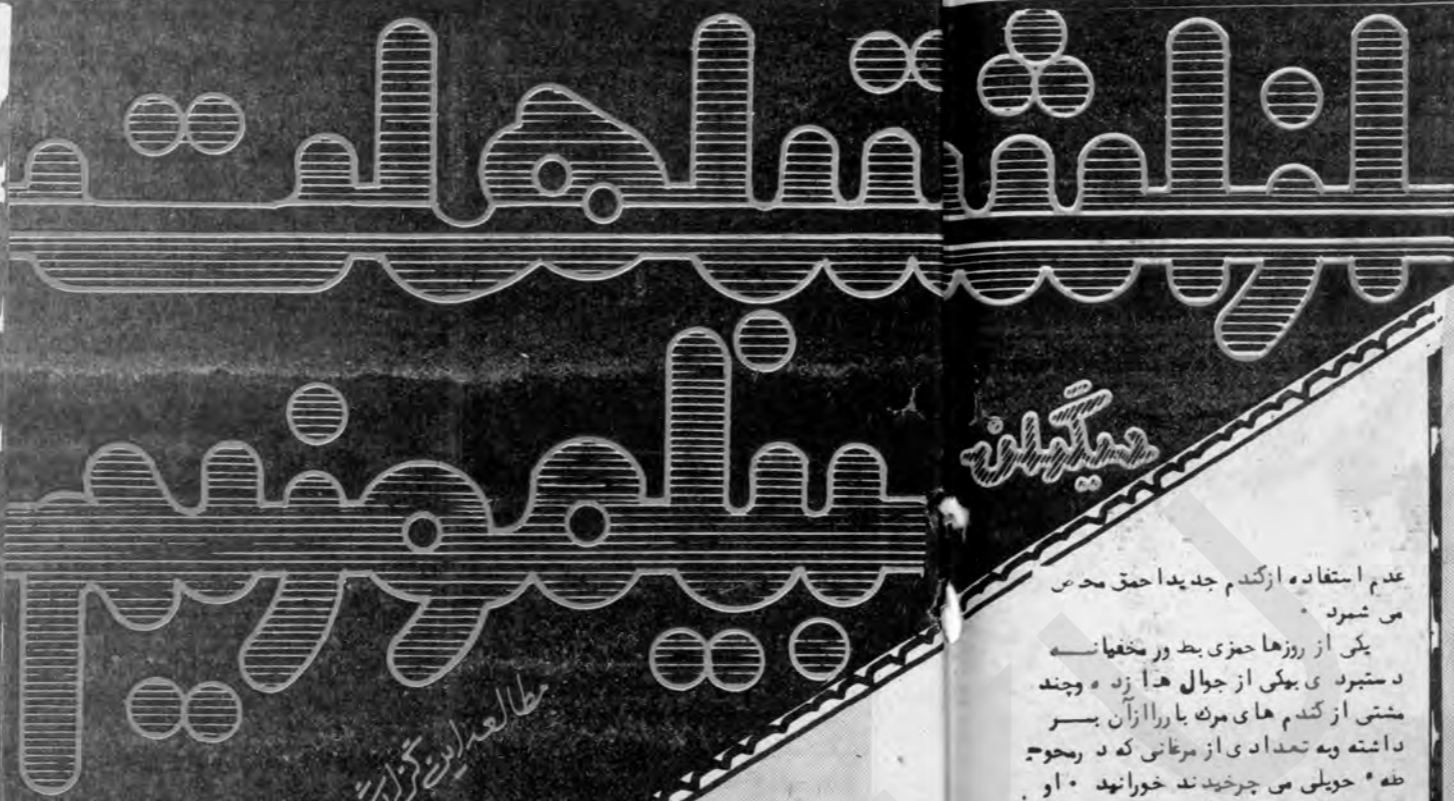 از اشتباهات
دیگران
بیاموزیم
مطالعه این گزارش
عدم استفاده ازگندم جدیداحمق محض
می شمرد ۰
یکی از روزها حمزی بطور مخفیانــه
دستبردی بیکی از جوال ها زده وچند
مشتی از گندم های مرگ بارراازآن بــر
داشته وبه تعدادی از مرغانی که درمحو-
طهٔ حویلی می چرخیدند خورانید ۰ او